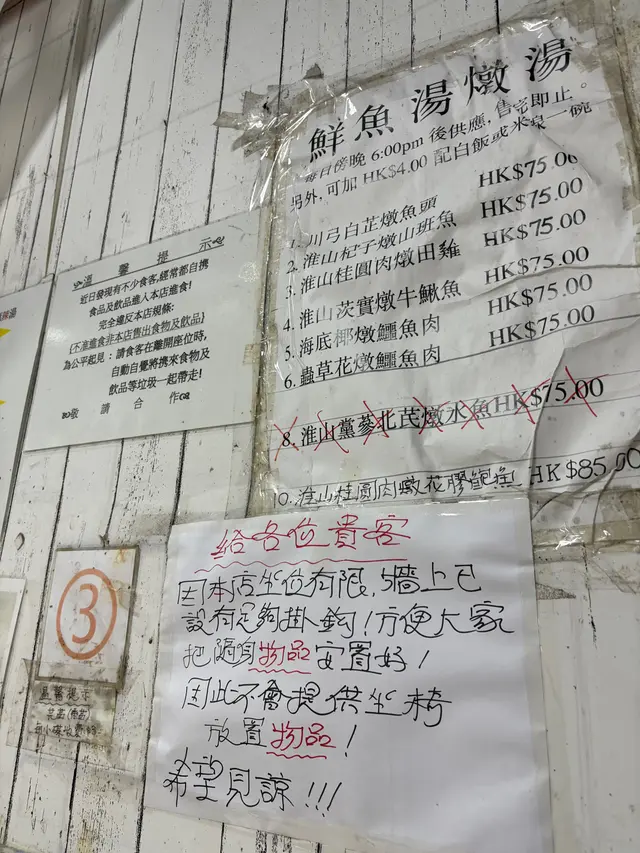 鮮魚湯燉湯
每日傍晚 6:00pm 後供應,售完即止。
另外,可加 HK$4.00 配白飯或米線一碗
1. 川弓白芷燉魚頭 HK$75.00
2. 淮山杞子燉山班魚 HK$75.00
3. 淮山桂圓肉燉田雞 HK$75.00
4. 淮山茨實燉牛鰍魚 HK$75.00
5. 海底椰燉鱷魚肉 HK$75.00
6. 蟲草花燉鱷魚肉 HK$75.00
8. 淮山黨蔘北芪燉水魚 HK$75.00
淮山桂圓肉燉花膠 HK$85.00
溫馨提示
近日發現有不少食客,經常都自携
食品及飲品進入本店進食!
完全違反本店規條:
{不准進食非本店售出食物及飲品}
為公平起見:請食客在離開座位時,
自動自覺將携來食物及
飲品等垃圾一起帶走!
敬請合作
給各位貴客
因本店坐位有限,牆上已
設有足夠掛鈎!方便大家
把隨身物品安置好!
因此不會提供坐椅
放置物品!
希望見諒!!!
3